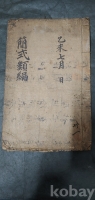 乙未七月 日
簡式類編
kobay